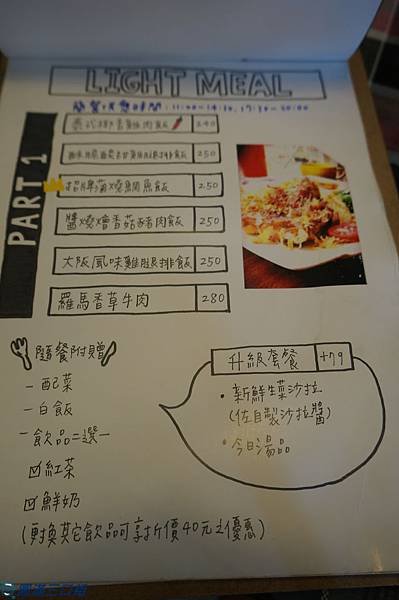 LIGHT MEAL
簡餐供應時間：11:00~14:30, 17:30~20:00
PART 1
泰式椰香雞肉飯 240
250
招牌蒲燒鯛魚飯 250
醬燒燴香菇豬肉飯 250
大阪風味雞腿排飯 250
羅馬香草牛肉 280
隨餐附贈
－配菜
－白飯
－飲品二選一
☑紅茶
☑鮮奶
(更換其它飲品可享折價40元之優惠)
升級套餐 +79
•新鮮生菜沙拉
(佐自製沙拉醬)
•今日湯品